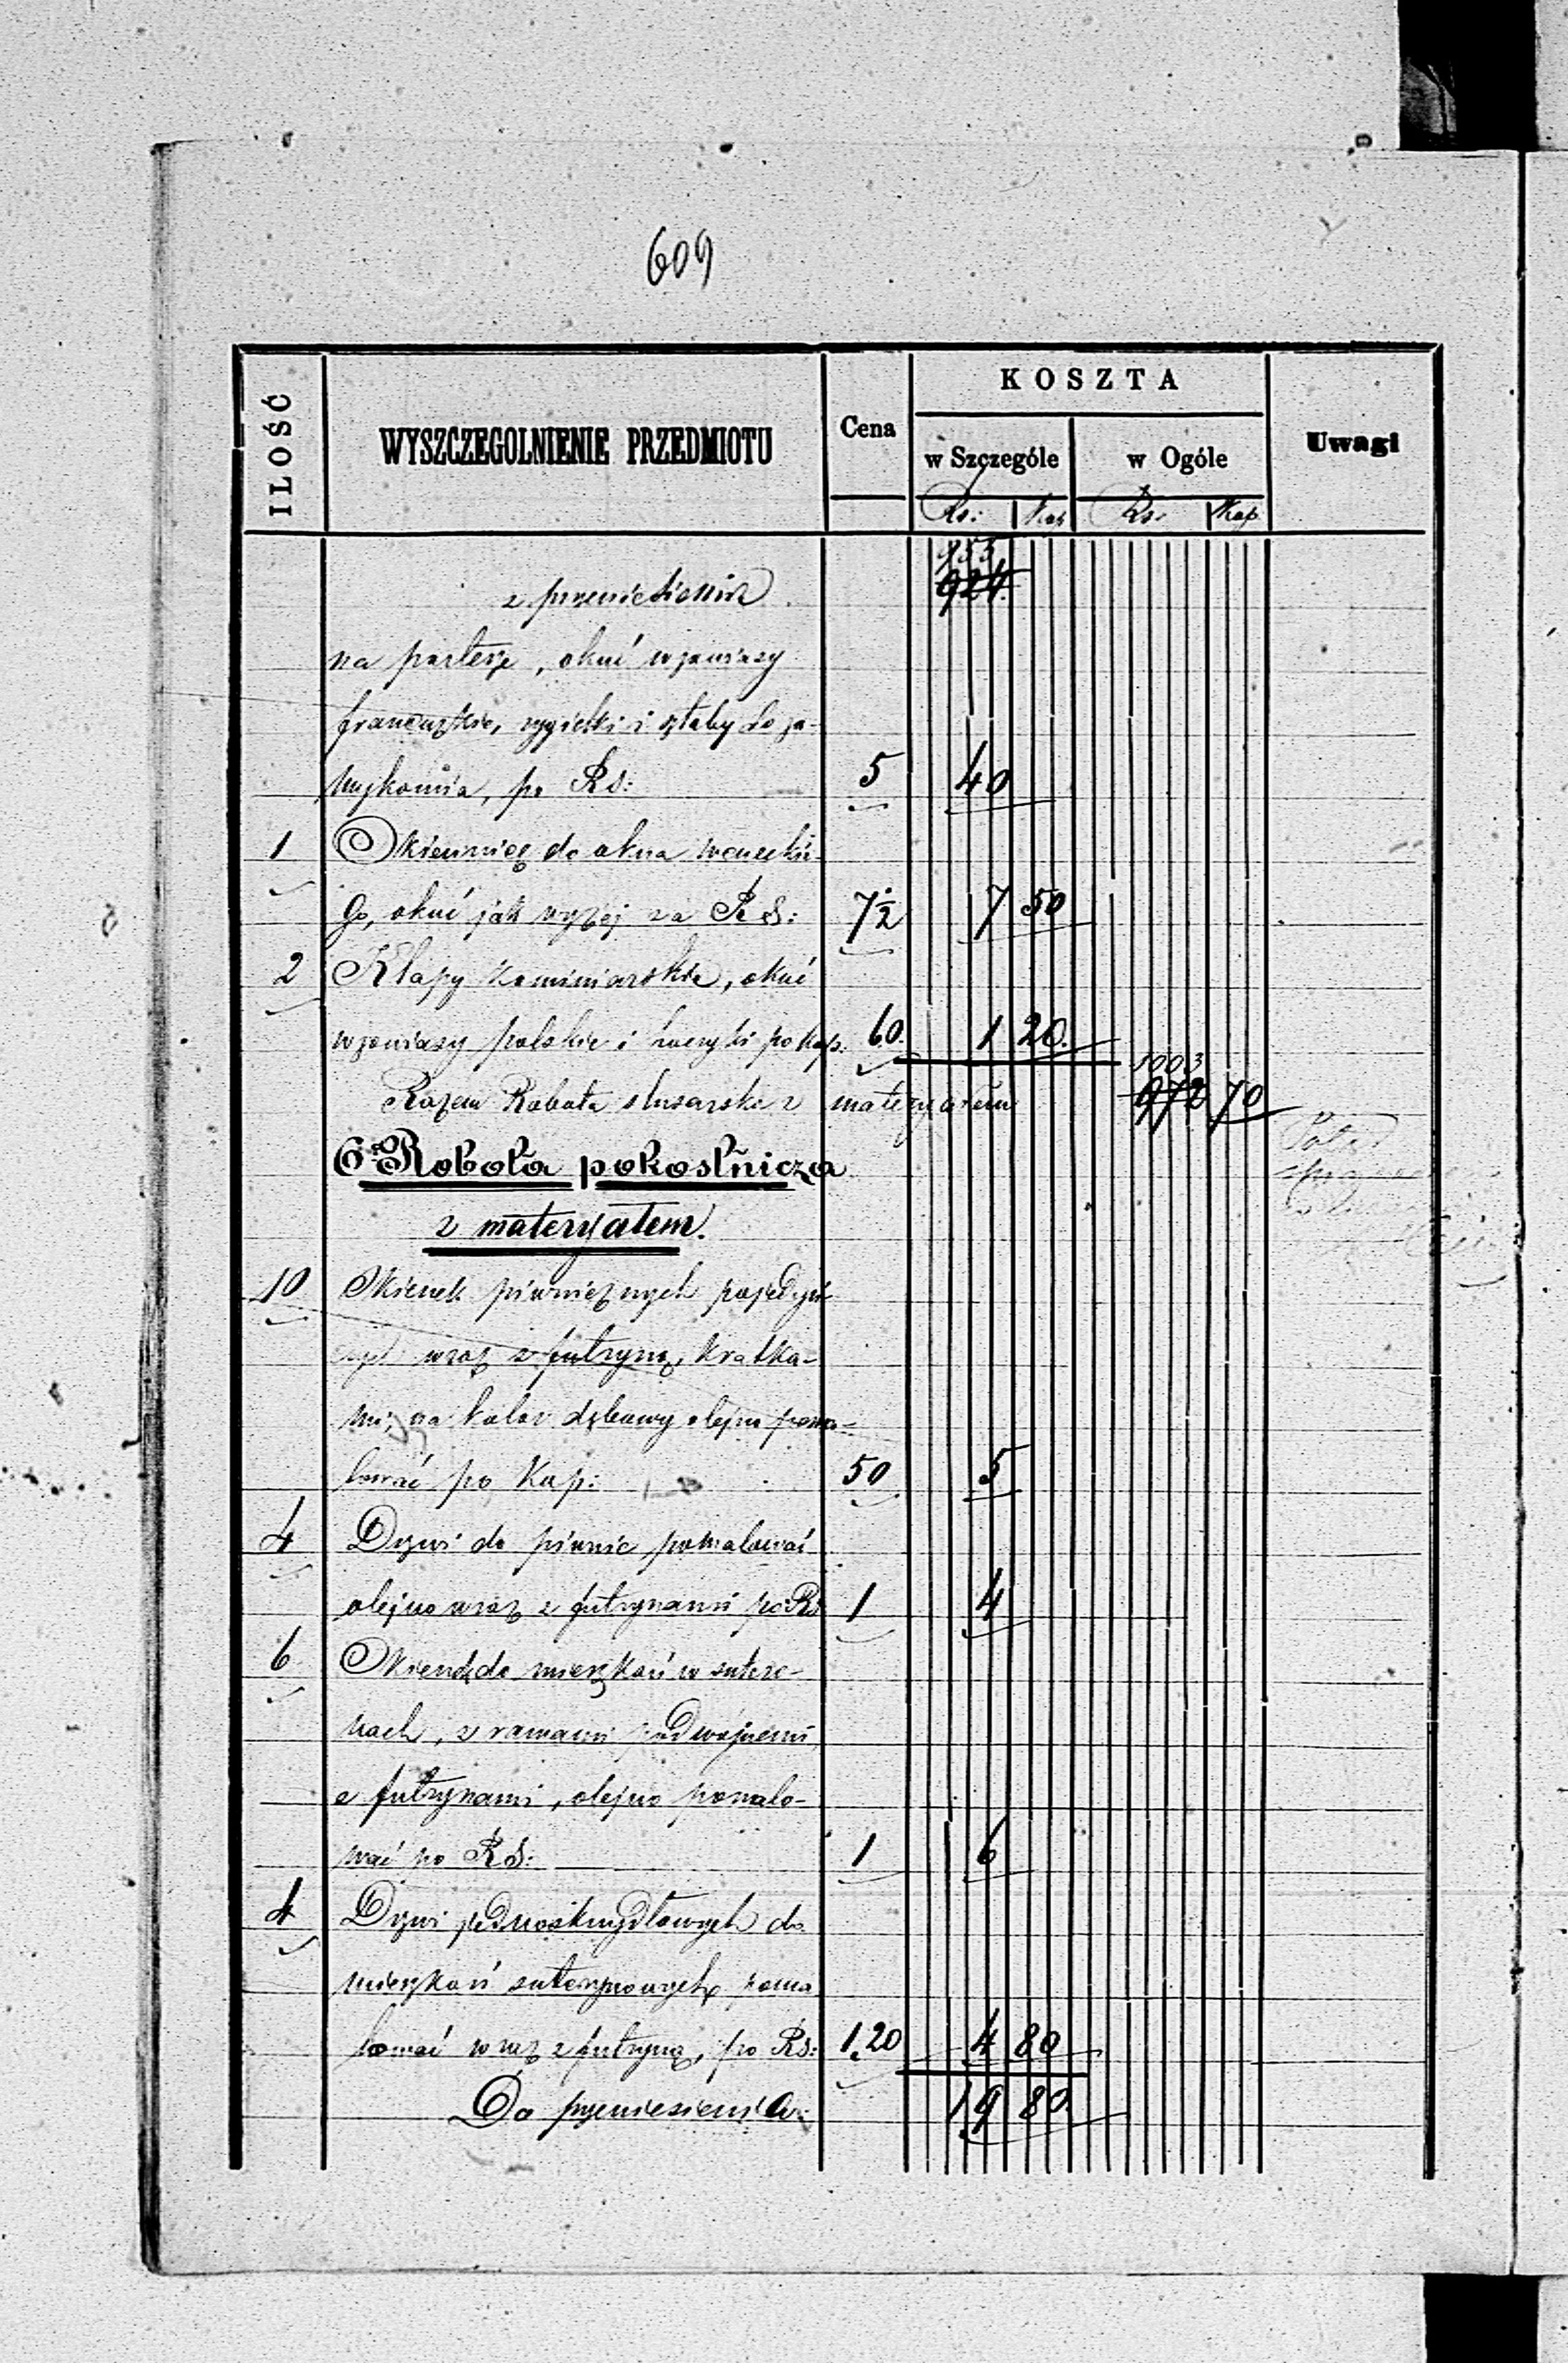 609
ILOŚĆ WYSZCZEGOLNIENIE PRZEDMIOTU Cena KOSZTA Uwagi
w Szczególe w Ogóle
Rs: Kop Rs. Kop
953
z przeniesienia 924.
na parterze, okuć w zawiasy
francuzkie, rygielki i sztaby do za-
mykania, po Rs: 5 40
1 Okiennicę do okna
go, okuć jak wyżej za Rs: 7½ 7 50
2 Klapy kominiarskie, okuć
w zawiasy polskie i haczyki po kop. 60. 1 20.
1003
Razem Robota slusarska z materyałem 972 70
6. Robota pokostnicza
z materyałem.
10 Okienek piwnicznych pojedyń-
czych wraz z futryną, kratka-
mi, na kolor dębowy olejno poma-
lować po Kop: 50 5
4 Drzwi do piwnic pomalować
olejno wraz z futrynami po Rs 1 4
6 Okien do mieszkań w sutere-
nach, z ramami podwójnemi,
z futrynami, olejno pomalo-
wać po Rs: 1 6
4 Drzwi jednoskrzydłowych do
mieszkań suterynowych poma
lować wraz z futryną, po Rs: 1.20 4 80
Do przeniesienia: 19 80.